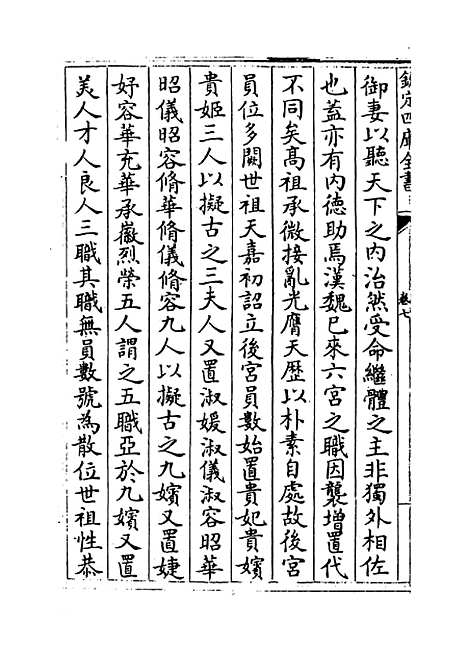 欽定四庫全書
卷七
御妻以聽天下之内治然受命繼體之主非獨外相佐
也蓋亦有内德助焉漢魏已來六宫之職因襲增置代
不同矣髙祖承微接亂光膺天歷以朴素自處故後宫
員位多闕世祖天嘉初詔立後宫員數始置貴妃貴嬪
貴姬三人以擬古之三夫人又置淑媛淑儀淑容昭華
昭儀昭容脩華脩儀脩容九人以擬古之九嬪又置婕
妤容華充華承徽烈榮五人謂之五職亞於九嬪又置
美人才人良人三職其職無員數號為散位世祖性恭